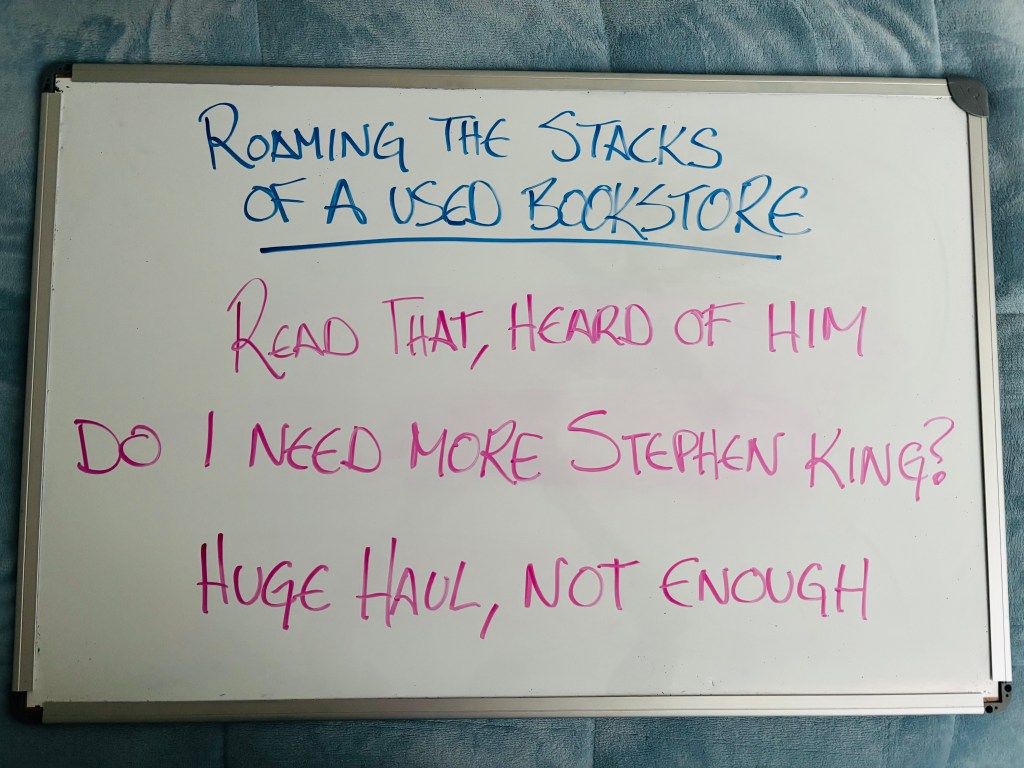 ROAMING THE STACKS
OF A USED BOOKSTORE
READ THAT, HEARD OF HIM
DO I NEED MORE STEPHEN KING?
HUGE HAUL, NOT ENOUGH